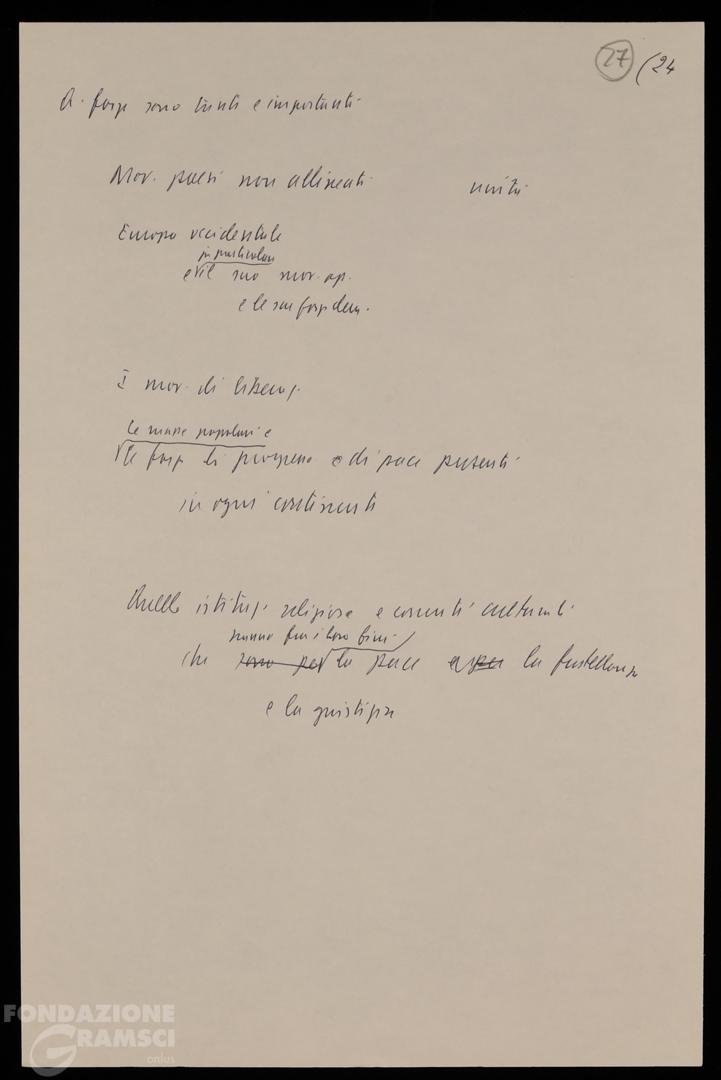 27 (24
forze sono tante e importanti
Mov. paesi non allineati unità
Europa occidentale
in particolare
e il suo mov. op.
e le sue forze dem.
I mov. di liberaz.
le masse popolari e
le forze di progresso e di pace presenti
in ogni continente
Quelle istituz. religiose e correnti culturali
hanno fra i loro fini
che sono per la pace e per la fratellanza
e la giustizia
FONDAZIONE
GRAMSCI
onlus